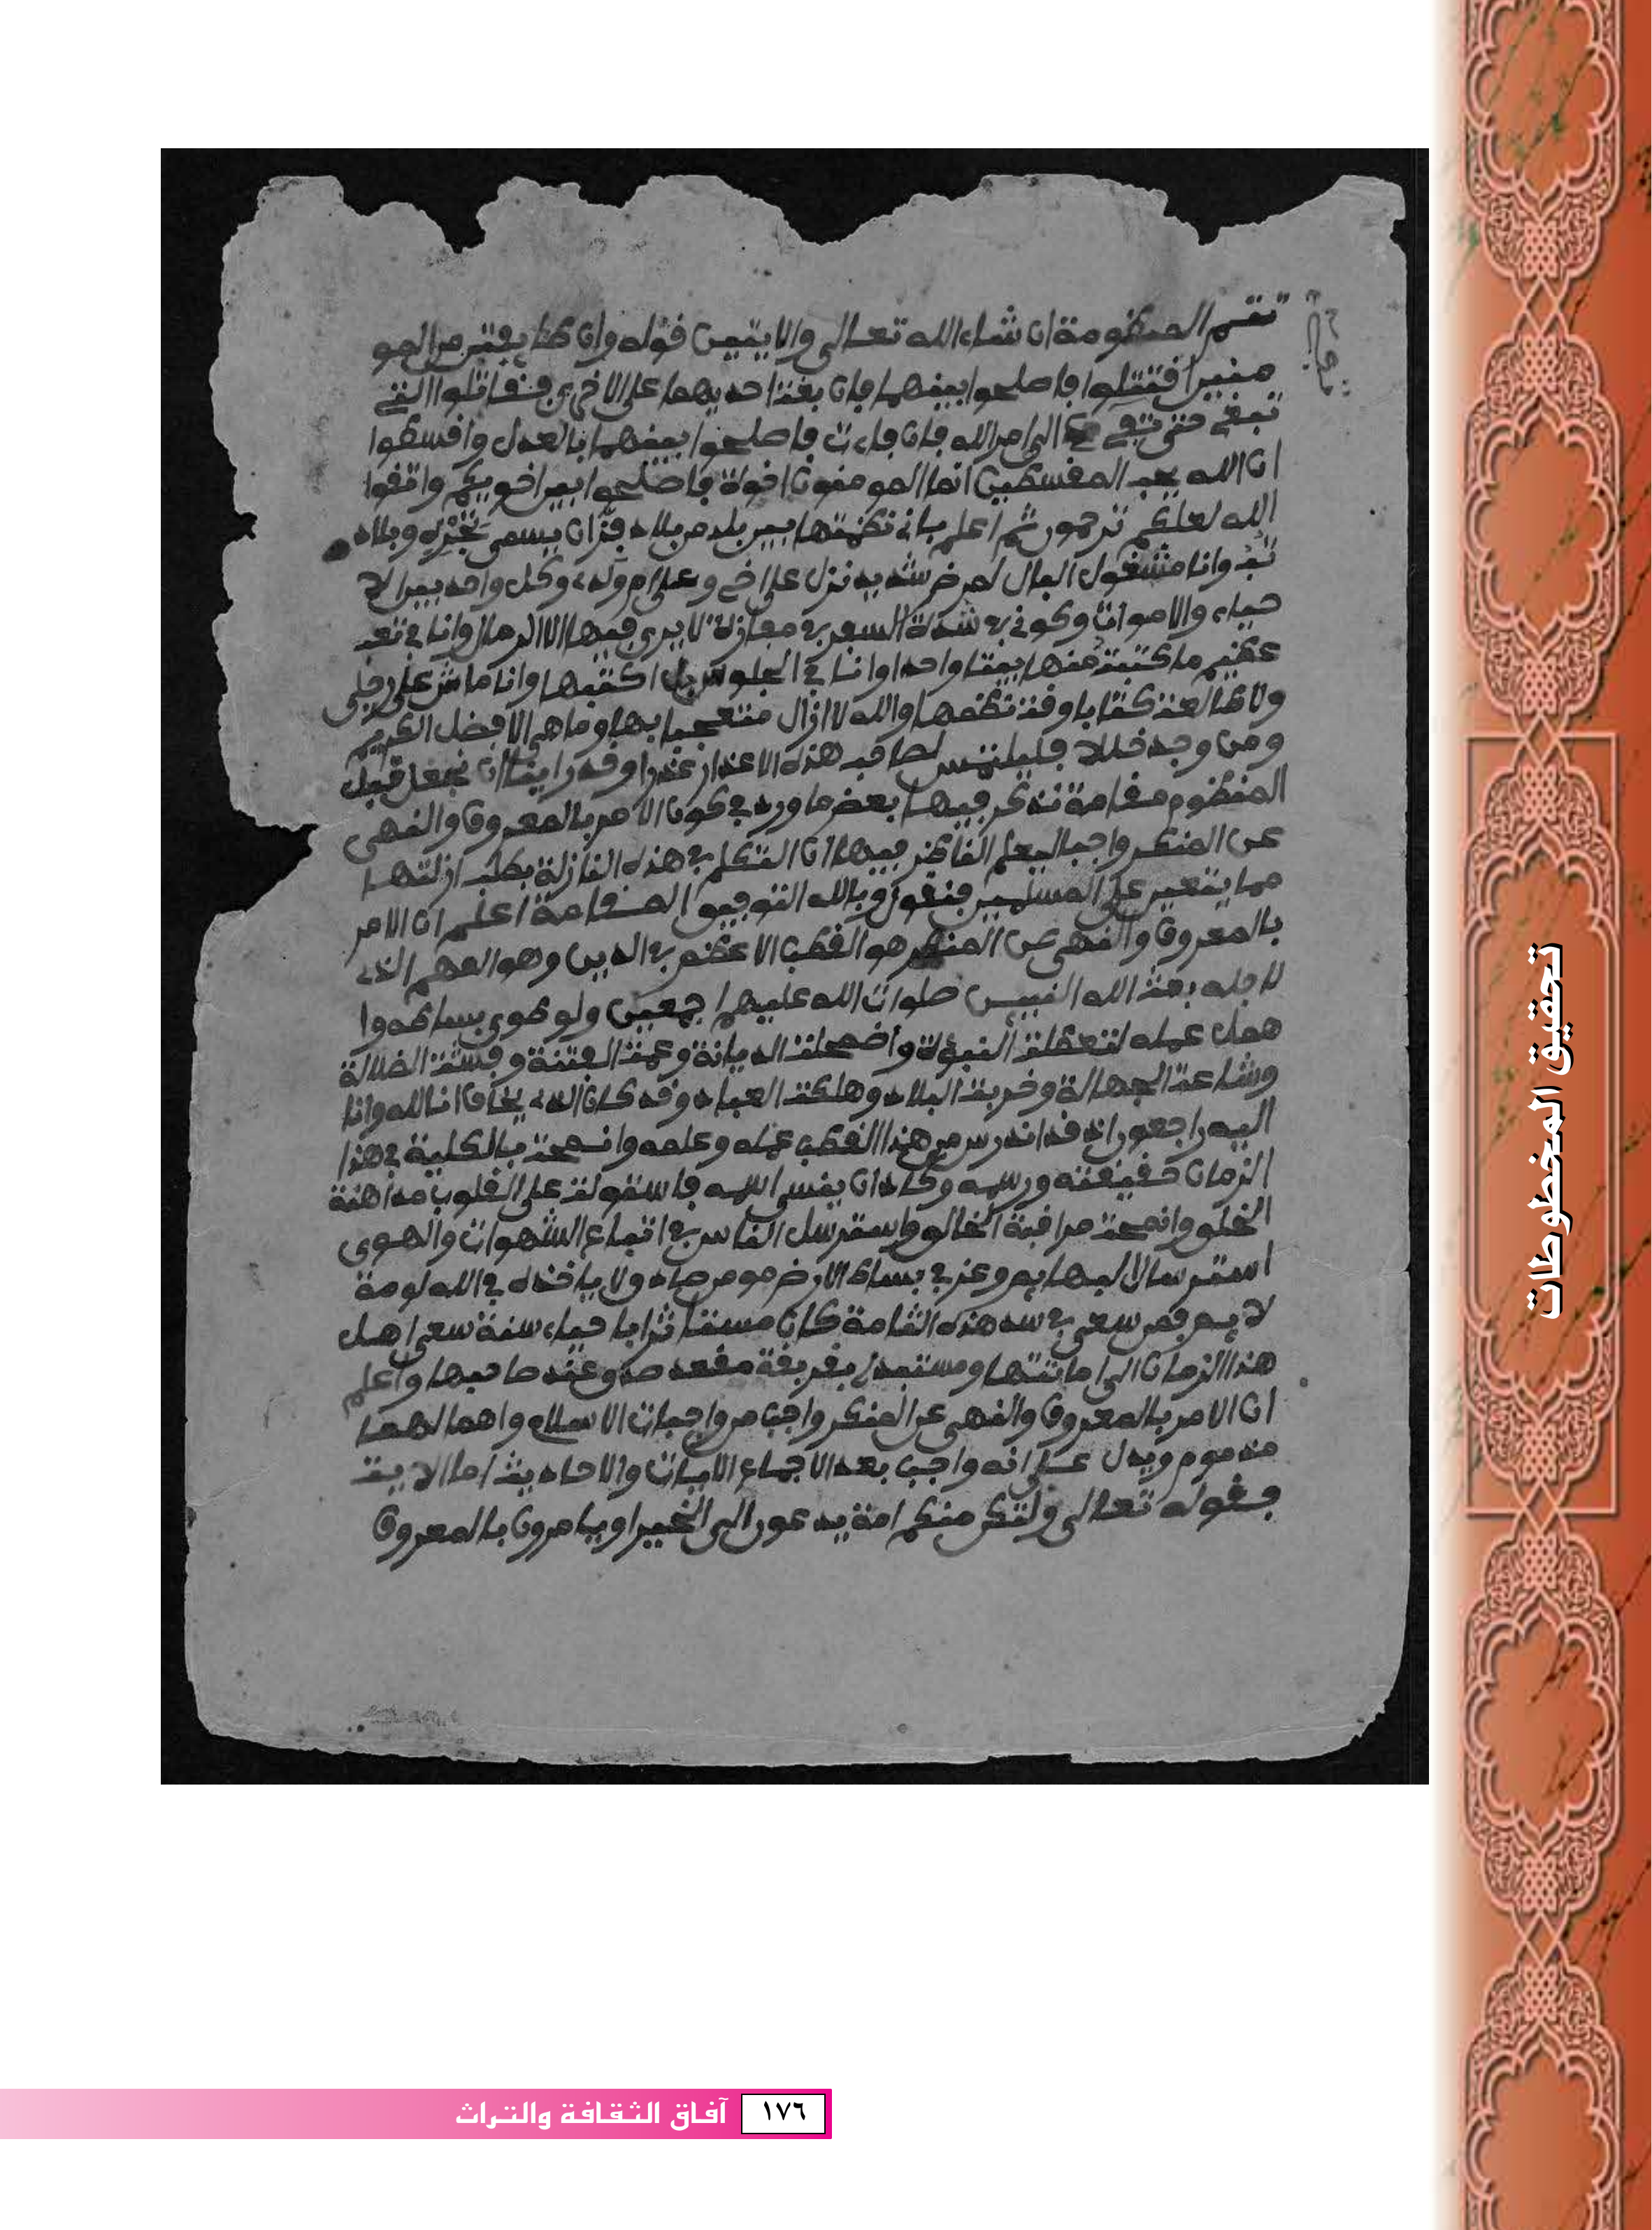 تتم المنظومة ان شاء الله تعالى والايتين قوله وان طا يفتن من المو
منين افتتلوا فاصلحوا بينهما فان بغت احديهما على الاخرى فقاتلوا التي
تبغي حتى تفي الى امر الله فان فاءت فاصلحوا بينهما بالعدل وافسطوا
ان الله يحب المقسطين انما المومنون اخوة فاصلحوا بين اخويكم واتقوا
الله لعلكم ترحمون ثم اعلم باني نظمتها بين بلد من بلاد فزان يسمى وبلاد
وانا مشغول البال لمرض شديد نزل على اخي وعلى ام ولده وكل واحد بين الا
حياء والاموات وكوني في شدة السير في مفازة لا يرى فيها الا الرمال وانا في تعب
عظيم ما كتبت منها بيتا واحدا وانا في الجلوس بل اكتبها وانا ماش على رجلي
ولا طالعت كتابا وقت نظمها والله لا ازال متعجبا بها وما هي الا فضل الكريم
ومن وجد خللا فليلتمس لصاحبه هذه الاعذار عذرا وقد راينا ان نجعل قبل
المنظوم مقامة نذكر فيها بعض ما ورد في كون الامر بالمعروف والنهى
عن المنكر واجبا ليعلم الناظر فيها ان التكلم في هذه النازلة بطلب ازلتها
مما يتعين على المسلمين فنقول وبالله التوفيق المقامة اعلم ان الامر
بالمعروف والنهى عن المنكر هو القطب الاعظم في الدين وهو المهم الذي
لاجله بعث الله النبيين صلوات الله عليهم اجمعين ولو طوى بساطه وا
همل عمله لتعطلت النبوة واضمحلت الديانة وعمت الفتنة وفشت الضلالة
وشاعت الجهالة وخربت البلاد وهلكت العباد وقد كان الذي يخاف انا لله وانا
اليه راجعون اذ قد اندرس من هذا القطب عمله وعلمه وانمحت بالكلية في هذا
الزمان حقيقته ورسمه وكاد ان ينسى اسمه فاستولت على القلوب مداهنة
الخلق وانمحت مراقبة الخالق واسترسل الناس في اتباع الشهوات والهوى
استرسال البهايم وعز في بساط الارض مومن صاد ولا ياخذه في الله لومة
لايم فمن سعى في سد هذه الثامة كان مستاثرا باحياء سنة سعى اهل
هذا الزمان الى اماتتها ومستبدا بقربة مقعد صدق عند صاحبها واعلم
ان الامر بالمعروف والنهى عن المنكر واجب من واجبات الاسلام واهمالهما
مذموم ويدل على انه واجب بعد الاجماع الايات والاحاديث اما الايت
فقوله تعالى ولتكن منكم امة يدعون الى الخير اويامرون بالمعروف
تحقيق المخطوطات
١٧٦ آفاق الثقافة والتراث